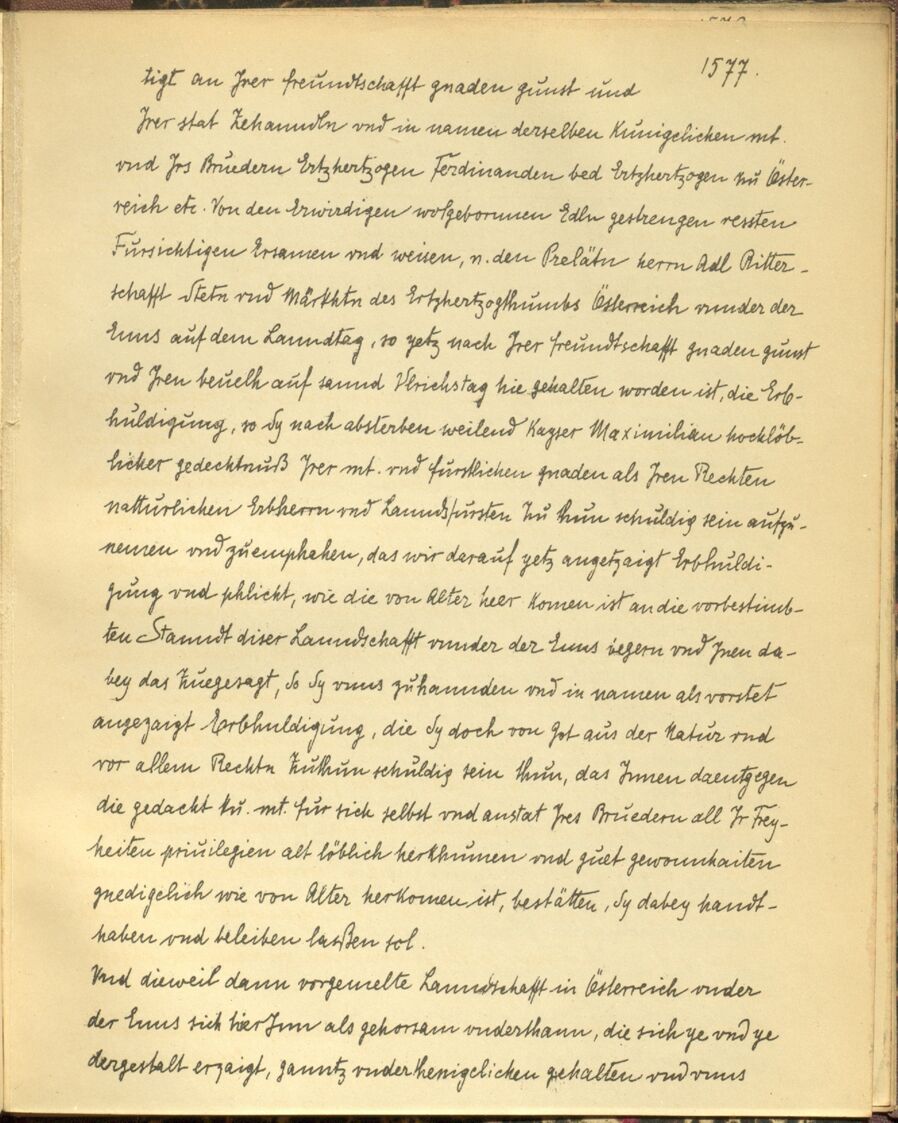 1577.
tigt an Irer freundtschafft gnaden gunst und
Irer stat Zehanndln vnd in namen derselben Kunigclichen mt.
vnd Irs Bruedern Ertzhertzogen Ferdinanden bed Ertzhertzogen zu Öster-
reich etc. Von den Erwirdigen wolgebornnen Edln gestrengen vessten
Fursichtigen Ersamen vnd weisen, n. den Prelätn herrn Adl Ritter-
schafft Stetn vnd Märkhtn des Ertzhertzogthumbs Österreich vnnder der
Enns auf dem Lanndtag, so yetz nach Irer freundtschafft gnaden gunst
vnd Iren beuelh auf sannd Vlrichstag hie gehalten worden ist, die Erb-
huldigung, so Sy nach absterben weilend Kayser Maximilian hochlöb-
licher gedechtnuß Irer mt. vnd furstlichen gnaden als Iren Rechten
natturlichen Erbherrn vnd Lanndsfursten zu thun schuldig sein aufzu-
nemen vnd zuemphahen, das wir darauf yetz angetzaigt Erbhuldi-
gung vnd phlicht, wie die von Alter heer komen ist an die vorbestimb-
ten Stanndt diser Lanndschafft vnnder der Enns begern vnd Inen da-
bey das Zuegesagt, So Sy vnns zuhannden vnd in namen als vorstet
angezaigt Erbhuldigung, die Sy doch von Got aus der Natur vnd
vor allem Rechtn Zuthun schuldig sein thun, das Innen daentgegen
die gedacht ku. mt. fur sich selbst vnd anstat Ires Bruedern all Ir Frey-
heiten priuilegien alt löblich herkhumen vnd guet gewonnhaiten
gnedigelich wie von Alter herkomen ist, bestätten, Sy dabey handt-
haben vnd beleiben laßen sol.
Vnd dieweil dann vorgemelte Lanndtschafft in Österreich vnder
der Enns sich hier Inn als gehorsam vnderthann, die sich ye vnd ye
dergestalt erzaigt, ganntz vnderthenigclichen gehalten vnd vnns